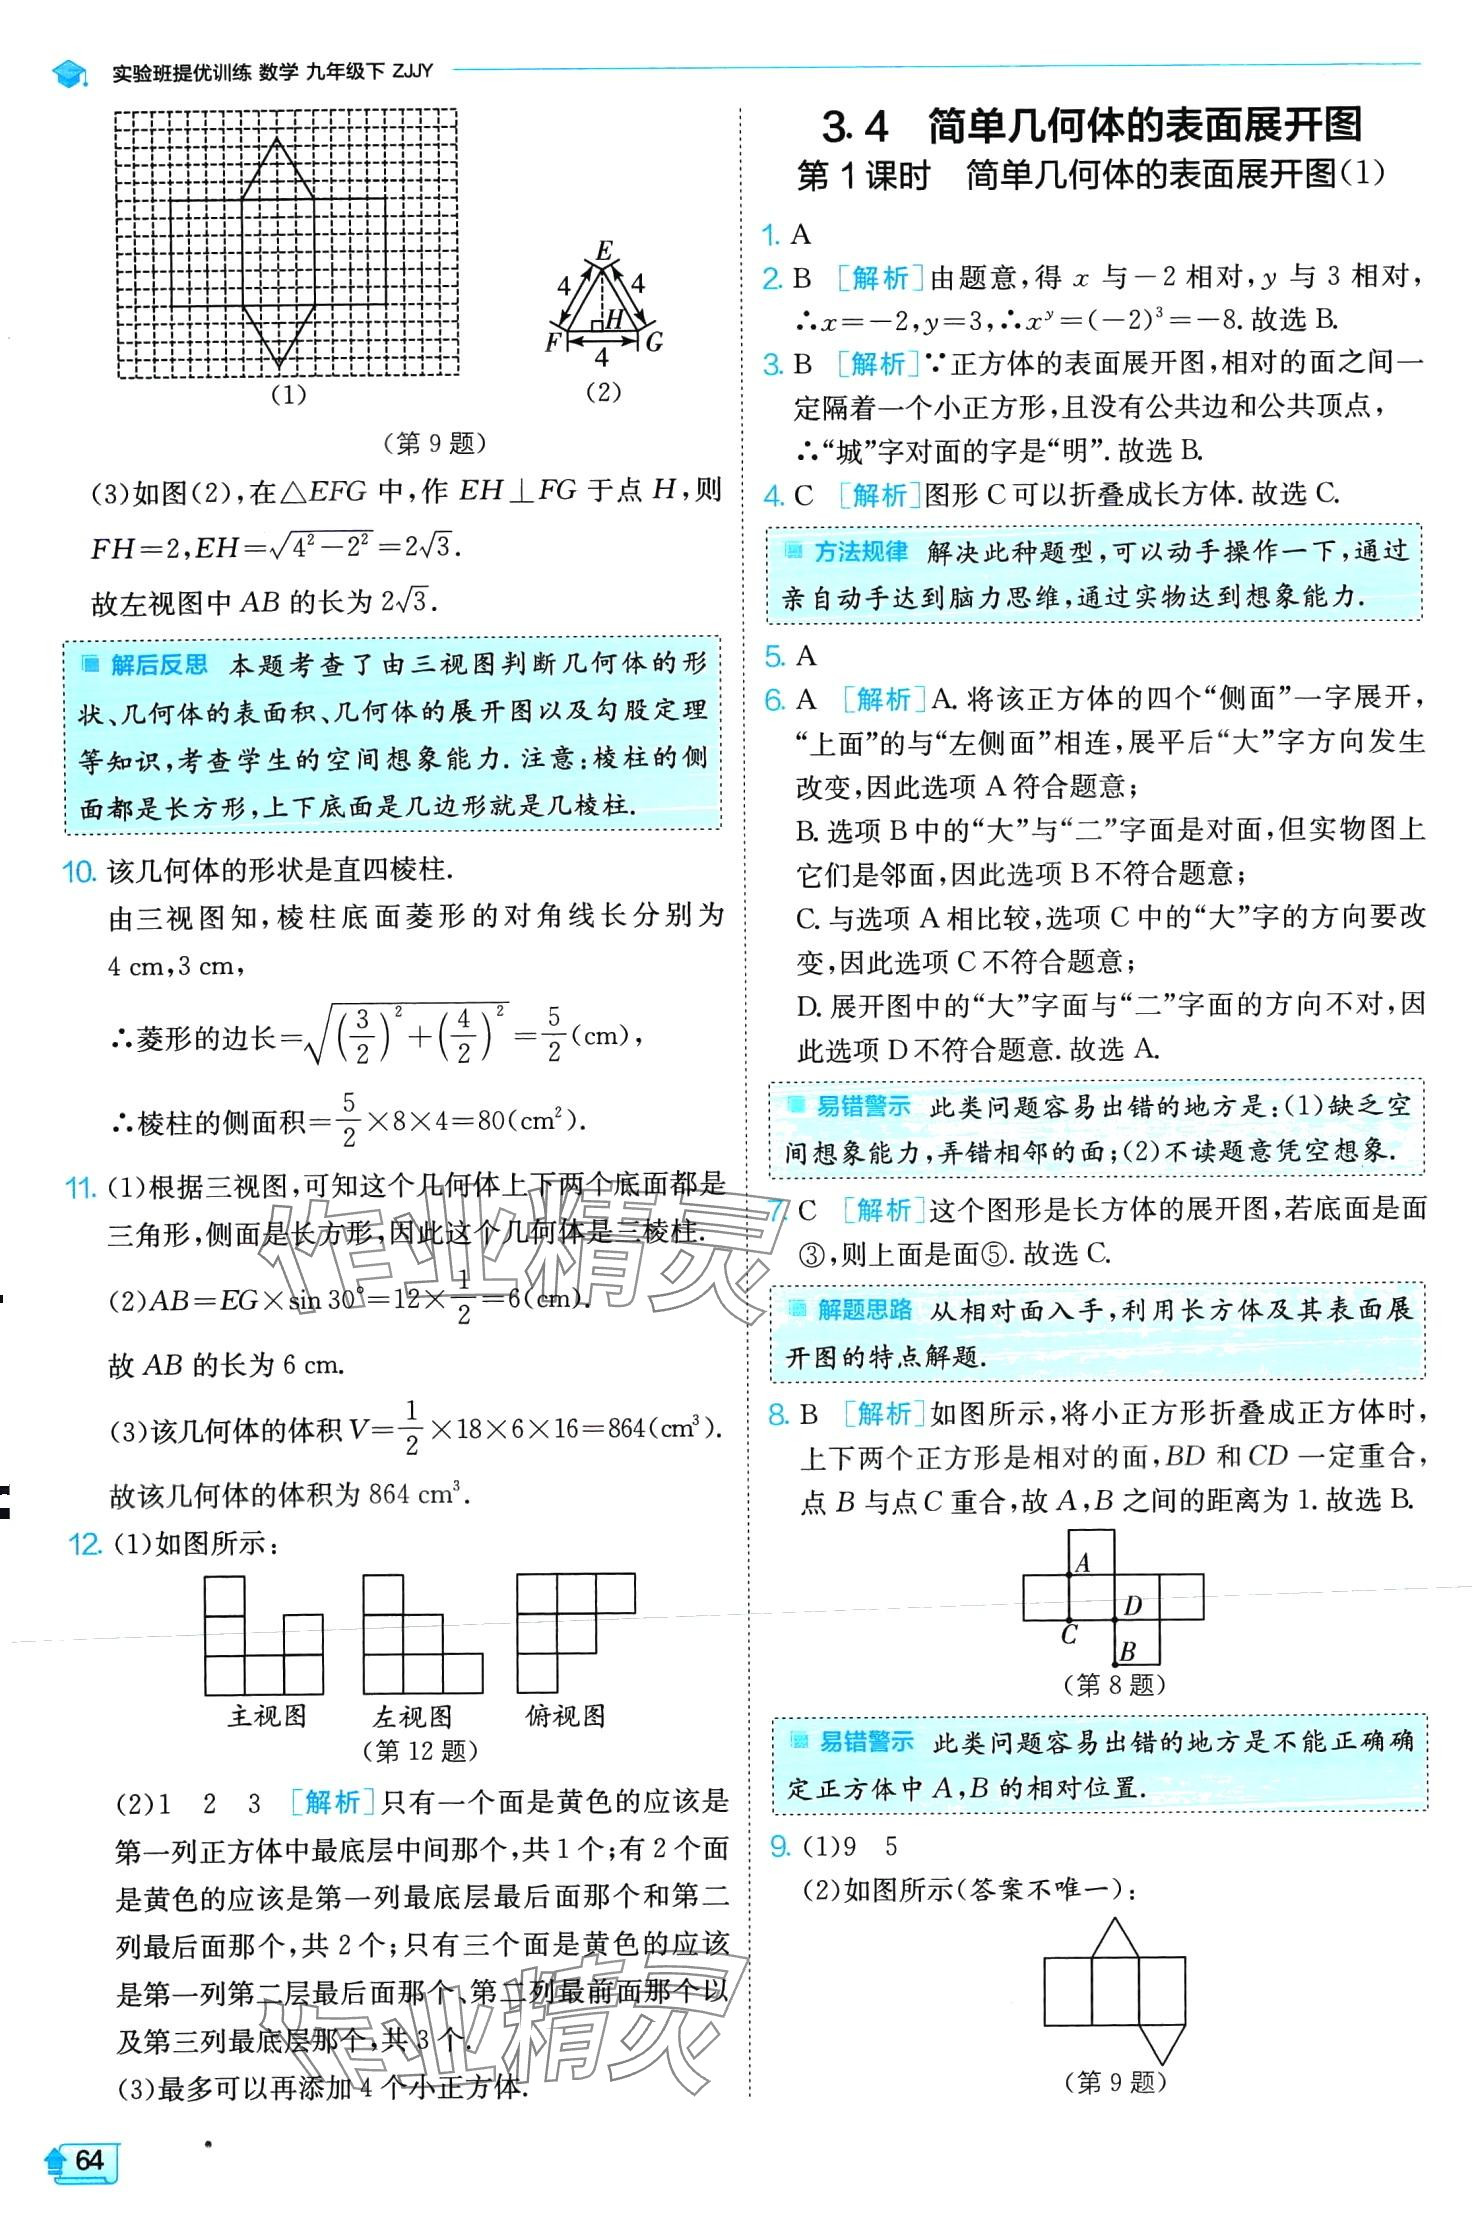 实验班提优训练 数学 九年级下 ZJJY
(1)
E
4
4
F
H
G
4
(2)
(第 9 题)
(3)如图(2),在△EFG 中,作 EH⊥FG 于点 H,则
FH=2,EH=√(4²-2²)=2√3.
故左视图中 AB 的长为 2√3.
解后反思 本题考查了由三视图判断几何体的形
状、几何体的表面积、几何体的展开图以及勾股定理
等知识,考查学生的空间想象能力.注意:棱柱的侧
面都是长方形,上下底面是几边形就是几棱柱.
10. 该几何体的形状是直四棱柱.
由三视图知,棱柱底面菱形的对角线长分别为
4 cm,3 cm,
∴菱形的边长=√((3/2)²+(4/2)²)=5/2(cm),
∴棱柱的侧面积=5/2×8×4=80(cm²).
11. (1)根据三视图,可知这个几何体上下两个底面都是
三角形,侧面是长方形,因此这个几何体是三棱柱.
(2)AB=EG×sin 30°=12×1/2=6(cm).
故 AB 的长为 6 cm.
(3)该几何体的体积 V=1/2×18×6×16=864(cm³).
故该几何体的体积为 864 cm³.
12. (1)如图所示:
主视图 左视图 俯视图
(第 12 题)
(2)1 2 3 [解析]只有一个面是黄色的应该是
第一列正方体中最底层中间那个,共 1 个;有 2 个面
是黄色的应该是第一列最底层最后面那个和第二
列最后面那个,共 2 个;只有三个面是黄色的应该
是第一列第二层最后面那个、第二列最前面那个以
及第三列最底层那个,共 3 个.
(3)最多可以再添加 4 个小正方体.
64
3.4 简单几何体的表面展开图
第 1 课时 简单几何体的表面展开图(1)
1. A
2. B [解析]由题意,得 x 与-2 相对,y 与 3 相对,
∴x=-2,y=3,∴xʸ=(-2)³=-8.故选 B.
3. B [解析]∵正方体的表面展开图,相对的面之间一
定隔着一个小正方形,且没有公共边和公共顶点,
∴“城”字对面的字是“明”.故选 B.
4. C [解析]图形 C 可以折叠成长方体.故选 C.
方法规律 解决此种题型,可以动手操作一下,通过
亲自动手达到脑力思维,通过实物达到想象能力.
5. A
6. A [解析]A.将该正方体的四个“侧面”一字展开,
“上面”的与“左侧面”相连,展平后“大”字方向发生
改变,因此选项 A 符合题意;
B.选项 B 中的“大”与“二”字面是对面,但实物图上
它们是邻面,因此选项 B 不符合题意;
C.与选项 A 相比较,选项 C 中的“大”字的方向要改
变,因此选项 C 不符合题意;
D.展开图中的“大”字面与“二”字面的方向不对,因
此选项 D 不符合题意.故选 A.
易错警示 此类问题容易出错的地方是:(1)缺乏空
间想象能力,弄错相邻的面;(2)不读题意凭空想象.
7. C [解析]这个图形是长方体的展开图,若底面是面
③,则上面是面⑤.故选 C.
解题思路 从相对面入手,利用长方体及其表面展
开图的特点解题.
8. B [解析]如图所示,将小正方形折叠成正方体时,
上下两个正方形是相对的面,BD 和 CD 一定重合,
点 B 与点 C 重合,故 A,B 之间的距离为 1.故选 B.
A
D
C
B
(第 8 题)
易错警示 此类问题容易出错的地方是不能正确确
定正方体中 A,B 的相对位置.
9. (1)9 5
(2)如图所示(答案不唯一):
(第 9 题)
作业精灵
作业精灵